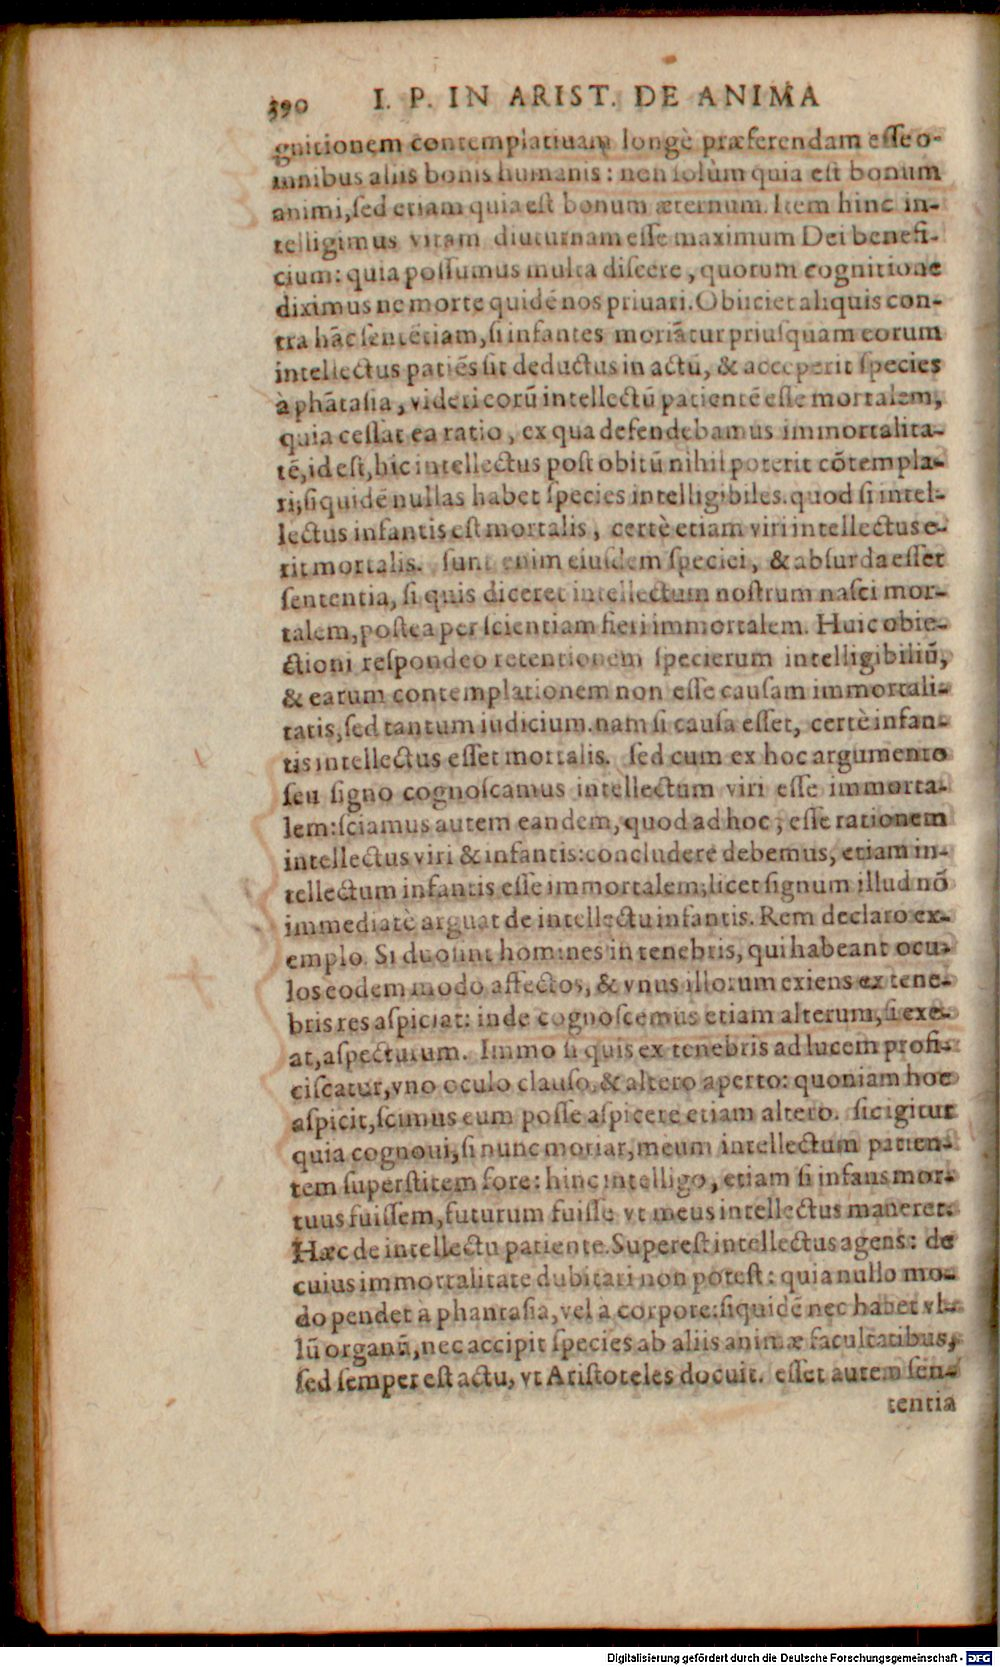 390 I. P. IN ARIST. DE ANIMA
gnitionem contemplatiuam longè præferendam eſſe o-
mnibus aliis bonis humanis: non ſolùm quia eſt bonum
animi, ſed etiam quia eſt bonum æternum. Item hinc in-
telligimus vitam diuturnam eſſe maximum Dei benefi-
cium: quia poſſumus multa diſcere, quorum cognitione
diximus ne morte quidē nos priuari. Obiiciet aliquis con-
tra hāc ſentētiam, ſi infantes moriātur priuſquam eorum
intellectus patiēs ſit deductus in actū, & acceperit ſpecies
à phātaſia, videri eorū intellectū patientē eſſe mortalem,
quia ceſſat ea ratio, ex qua defendebamus immortalita-
tē, id eſt, hic intellectus poſt obitū nihil poterit cōtempla-
ri, ſiquidē nullas habet ſpecies intelligibiles. quod ſi intel-
lectus infantis eſt mortalis, certè etiam viri intellectus e-
rit mortalis. ſunt enim eiuſdem ſpeciei, & abſurda eſſet
ſententia, ſi quis diceret intellectum noſtrum naſci mor-
talem, poſtea per ſcientiam fieri immortalem. Huic obie-
ctioni reſpondeo retentionem ſpecierum intelligibiliū,
& earum contemplationem non eſſe cauſam immortali-
tatis, ſed tantum iudicium. nam ſi cauſa eſſet, certè infan-
tis intellectus eſſet mortalis. ſed cum ex hoc argumento
ſeu ſigno cognoſcamus intellectum viri eſſe immorta-
lem: ſciamus autem eandem, quod ad hoc, eſſe rationem
intellectus viri & infantis: concludere debemus, etiam in-
tellectum infantis eſſe immortalem; licet ſignum illud nō
immediatè arguat de intellectu infantis. Rem declaro ex-
emplo. Si duo ſint homines in tenebris, qui habeant ocu-
los eodem modo affectos, & vnus illorum exiens ex tene-
bris res aſpiciat: inde cognoſcemus etiam alterum, ſi exe-
at, aſpecturum. Immo ſi quis ex tenebris ad lucem profi-
ciſcatur, vno oculo clauſo, & altero aperto: quoniam hoc
aſpicit, ſcimus eum poſſe aſpicere etiam altero. ſic igitur
quia cognoui, ſi nunc moriar, meum intellectum patien-
tem ſuperſtitem fore: hinc intelligo, etiam ſi infans mor-
tuus fuiſſem, futurum fuiſſe vt meus intellectus maneret.
Hæc de intellectu patiente. Supereſt intellectus agens: de
cuius immortalitate dubitari non poteſt: quia nullo mo-
do pendet à phantaſia, vel à corpore: ſiquidē nec habet vl-
lū organū, nec accipit ſpecies ab aliis animæ facultatibus,
ſed ſemper eſt actu, vt Ariſtoteles docuit. eſſet autem ſen-
tentia
Digitalisierung gefördert durch die Deutsche Forschungsgemeinschaft - DFG